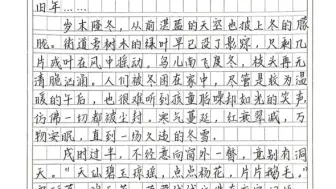 旧年……
岁末隆冬，从前湛蓝的天空也披上冬的朦
胧。街道旁树木的绿叶早已没了影踪，只剩几
片或叶在风中摇动，鸟儿南飞度冬，枝头再无
清脆沾涌。人们被困在家中，尽管是较为温
暖的午后，也很难听到孩童聒噪却如光的笑声，
仿佛一切都被尘封，寒气蔓延，红衰翠减，万
物安眠，直到一场久违的冬雪。
戌时过半，不经意向窗外一瞥，竟别有洞
天。“天山碧玉琼瑶，点点杨花，片片鹅毛。”